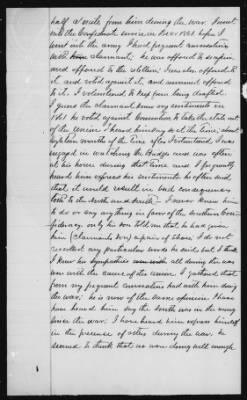 half a mile from him during the war. I went
into the Confederate service in Nov 1861 before I
went into the army I had frequent conversations
with claimant; he was opposed to secession
and opposed to the rebellion; I was also opposed to
it and voted against it and remained opposed
to it. I volunteered to keep from being drafted.
I guess the claimant knew my sentiments in
1861 he voted against Convention to take the state out
of the union I heard him say so at the time; about
months of the time after I volunteered, I was
engaged in watching the Bridge and was often
at his house during that time and I frequently
heard him express his sentiments he often said
that it would result in bad consequences
both to the North and South. I never knew him
to do or say anything in favor of the southern Con
federacy, only his son told me that he had given
him (claimants son) a pair of shoes. I do not
recollect any particular words he said; but I think
I knew his sympathies all during the war
was with the cause of the union. I gathered that
from my frequent conversations had with him during
the war; he is now of the same opinion. I have
heard him say the South was in the wrong
since the war. I have heard him express himself
in the presence of others during the war, he
seemed to think that we were doing well enough